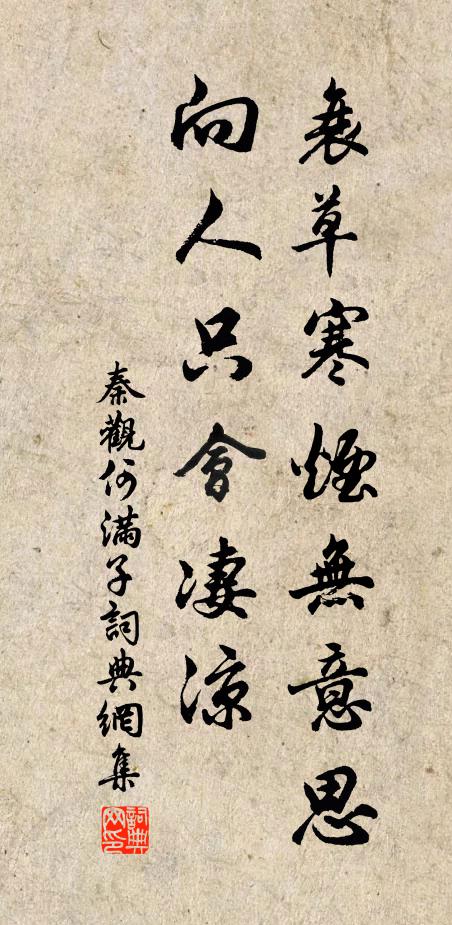 衰草寒煙無意思
向人只會凄涼
秦觀何滿子詞典網集
詞典網印